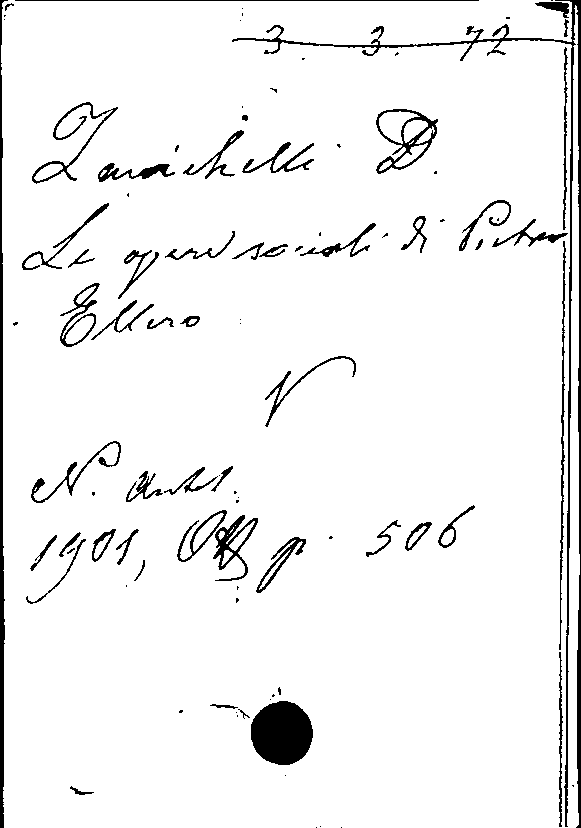 3. 3. 72
Zanichelli D.
Le opere sociali di Pietro
Ellero
V
N. Antol.
1901, p. 506